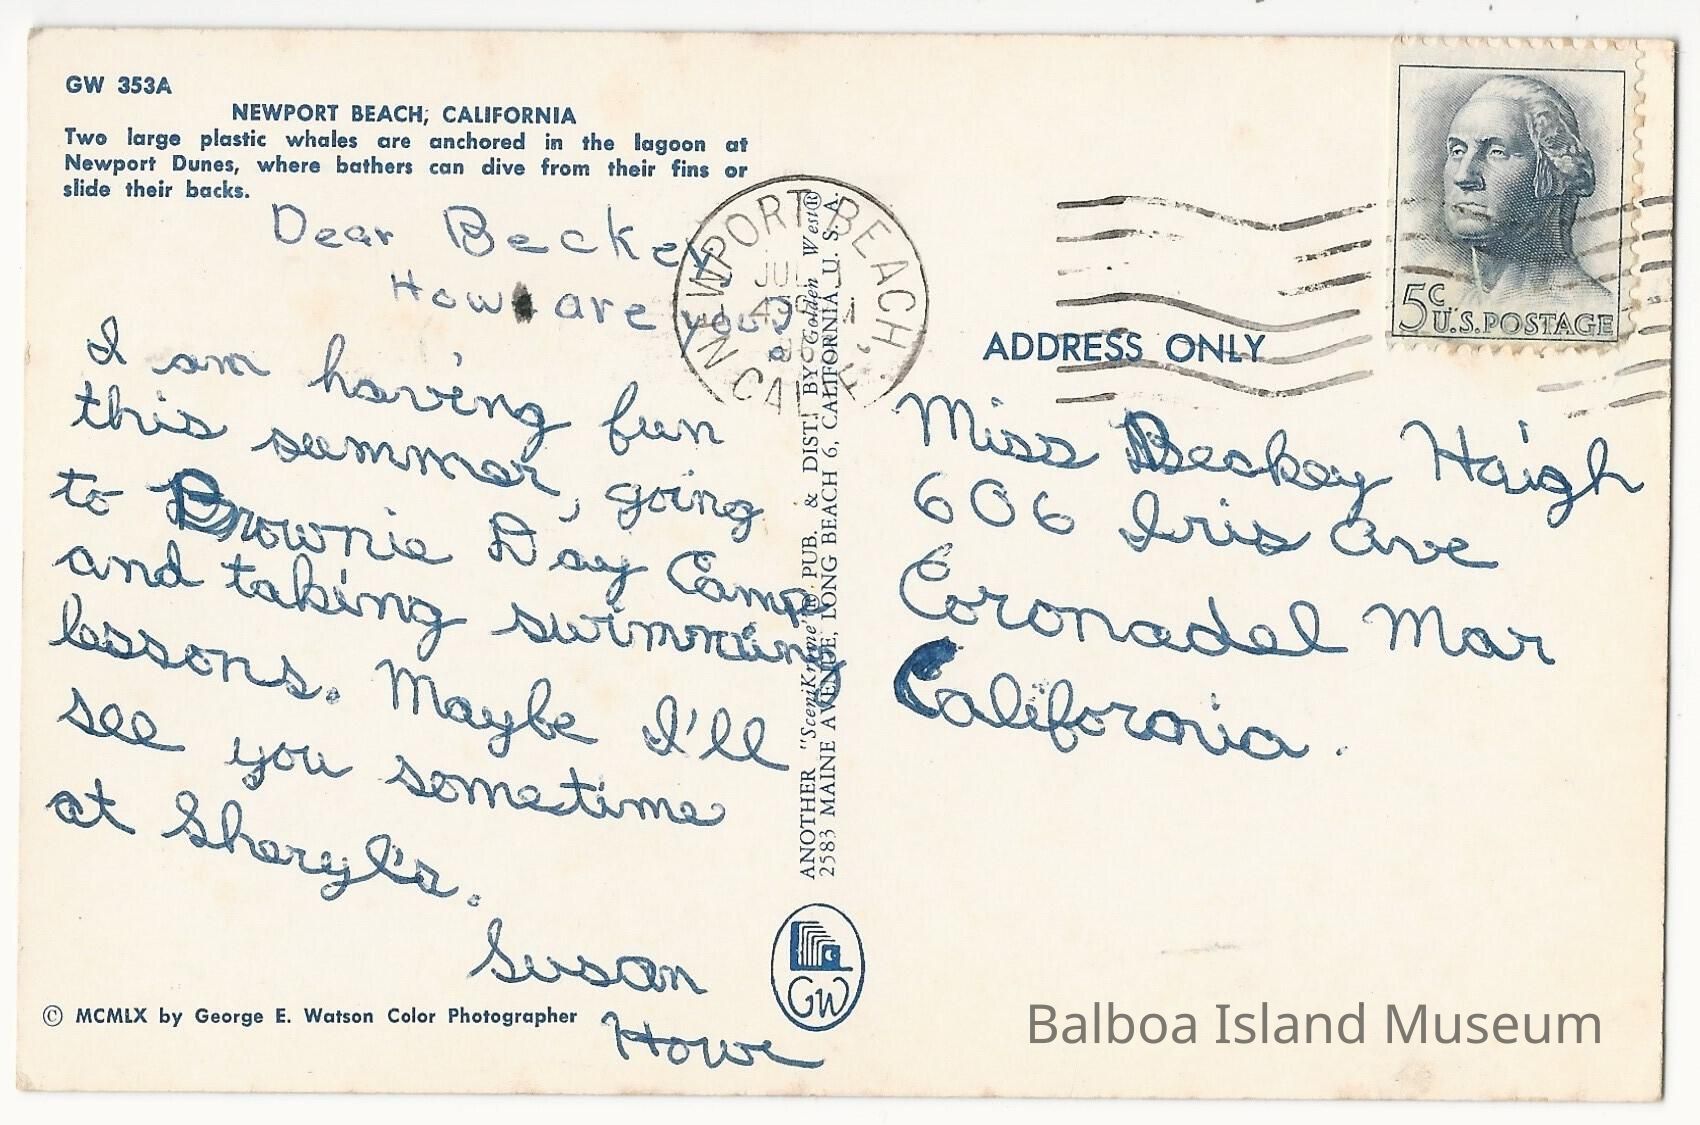 GW 353A
NEWPORT BEACH, CALIFORNIA
Two large plastic whales are anchored in the lagoon at
Newport Dunes, where bathers can dive from their fins or
slide their backs.
Dear Beckey
How are you?
I am having fun
this summer, going
to Brownie Day Camp
and taking swimming
lessons. Maybe I'll
see you sometime
at Sheryl's.
Susan
Howe
© MCMLX by George E. Watson Color Photographer
NEWPORT BEACH,
JUL
CALIF
ANOTHER "SceniKrome"® PUB. & DIST. BY "Golden West®
2583 MAINE AVENUE, LONG BEACH 6, CALIFORNIA, U. S. A.
GW
5c
U.S. POSTAGE
ADDRESS ONLY
Miss Beckey Haigh
606 Iris Ave
Coronadel Mar
California.
Balboa Island Museum